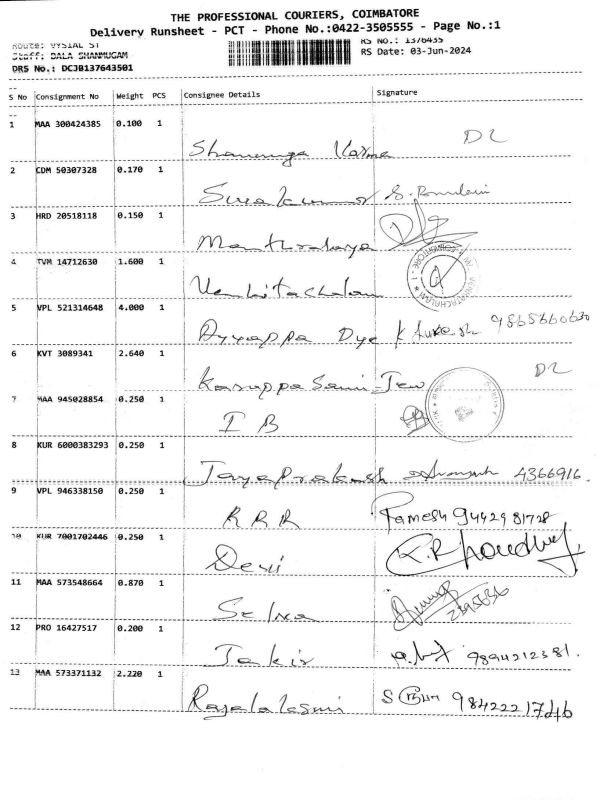 THE PROFESSIONAL COURIERS, COIMBATORE
Delivery Runsheet - PCT - Phone No.:0422-3505555 - Page No.:1
Route: VYSIAL ST
RS No.: 1376435
Staff: BALA SHANMUGAM
RS Date: 03-Jun-2024
DRS No.: DCJB137643501
S No Consignment No Weight PCS Consignee Details Signature
1 MAA 300424385 0.100 1
Shanmuga Varma D2
2 CDM 50307328 0.170 1
Sivakumar
3 HRD 20518118 0.150 1
Manthralaya
4 TVM 14712630 1.600 1
Venkitachalam
5 VPL 521314648 4.000 1
Ayyappa Dye K 9865660630
6 KVT 3089341 2.640 1
Karuppasami Jew D2
7 MAA 945028854 0.250 1
I B
8 KUR 6000383293 0.250 1
Jayaprakash 4366916.
9 VPL 946338150 0.250 1
R R R Ramesh 9442981728
10 KUR 7001702446 0.250 1
Devi K.R. Choudhury
11 MAA 573548664 0.870 1
Selva
12 PRO 16427517 0.200 1
Jakir 9894212381.
13 MAA 573371132 2.220 1
Rajalaksmi